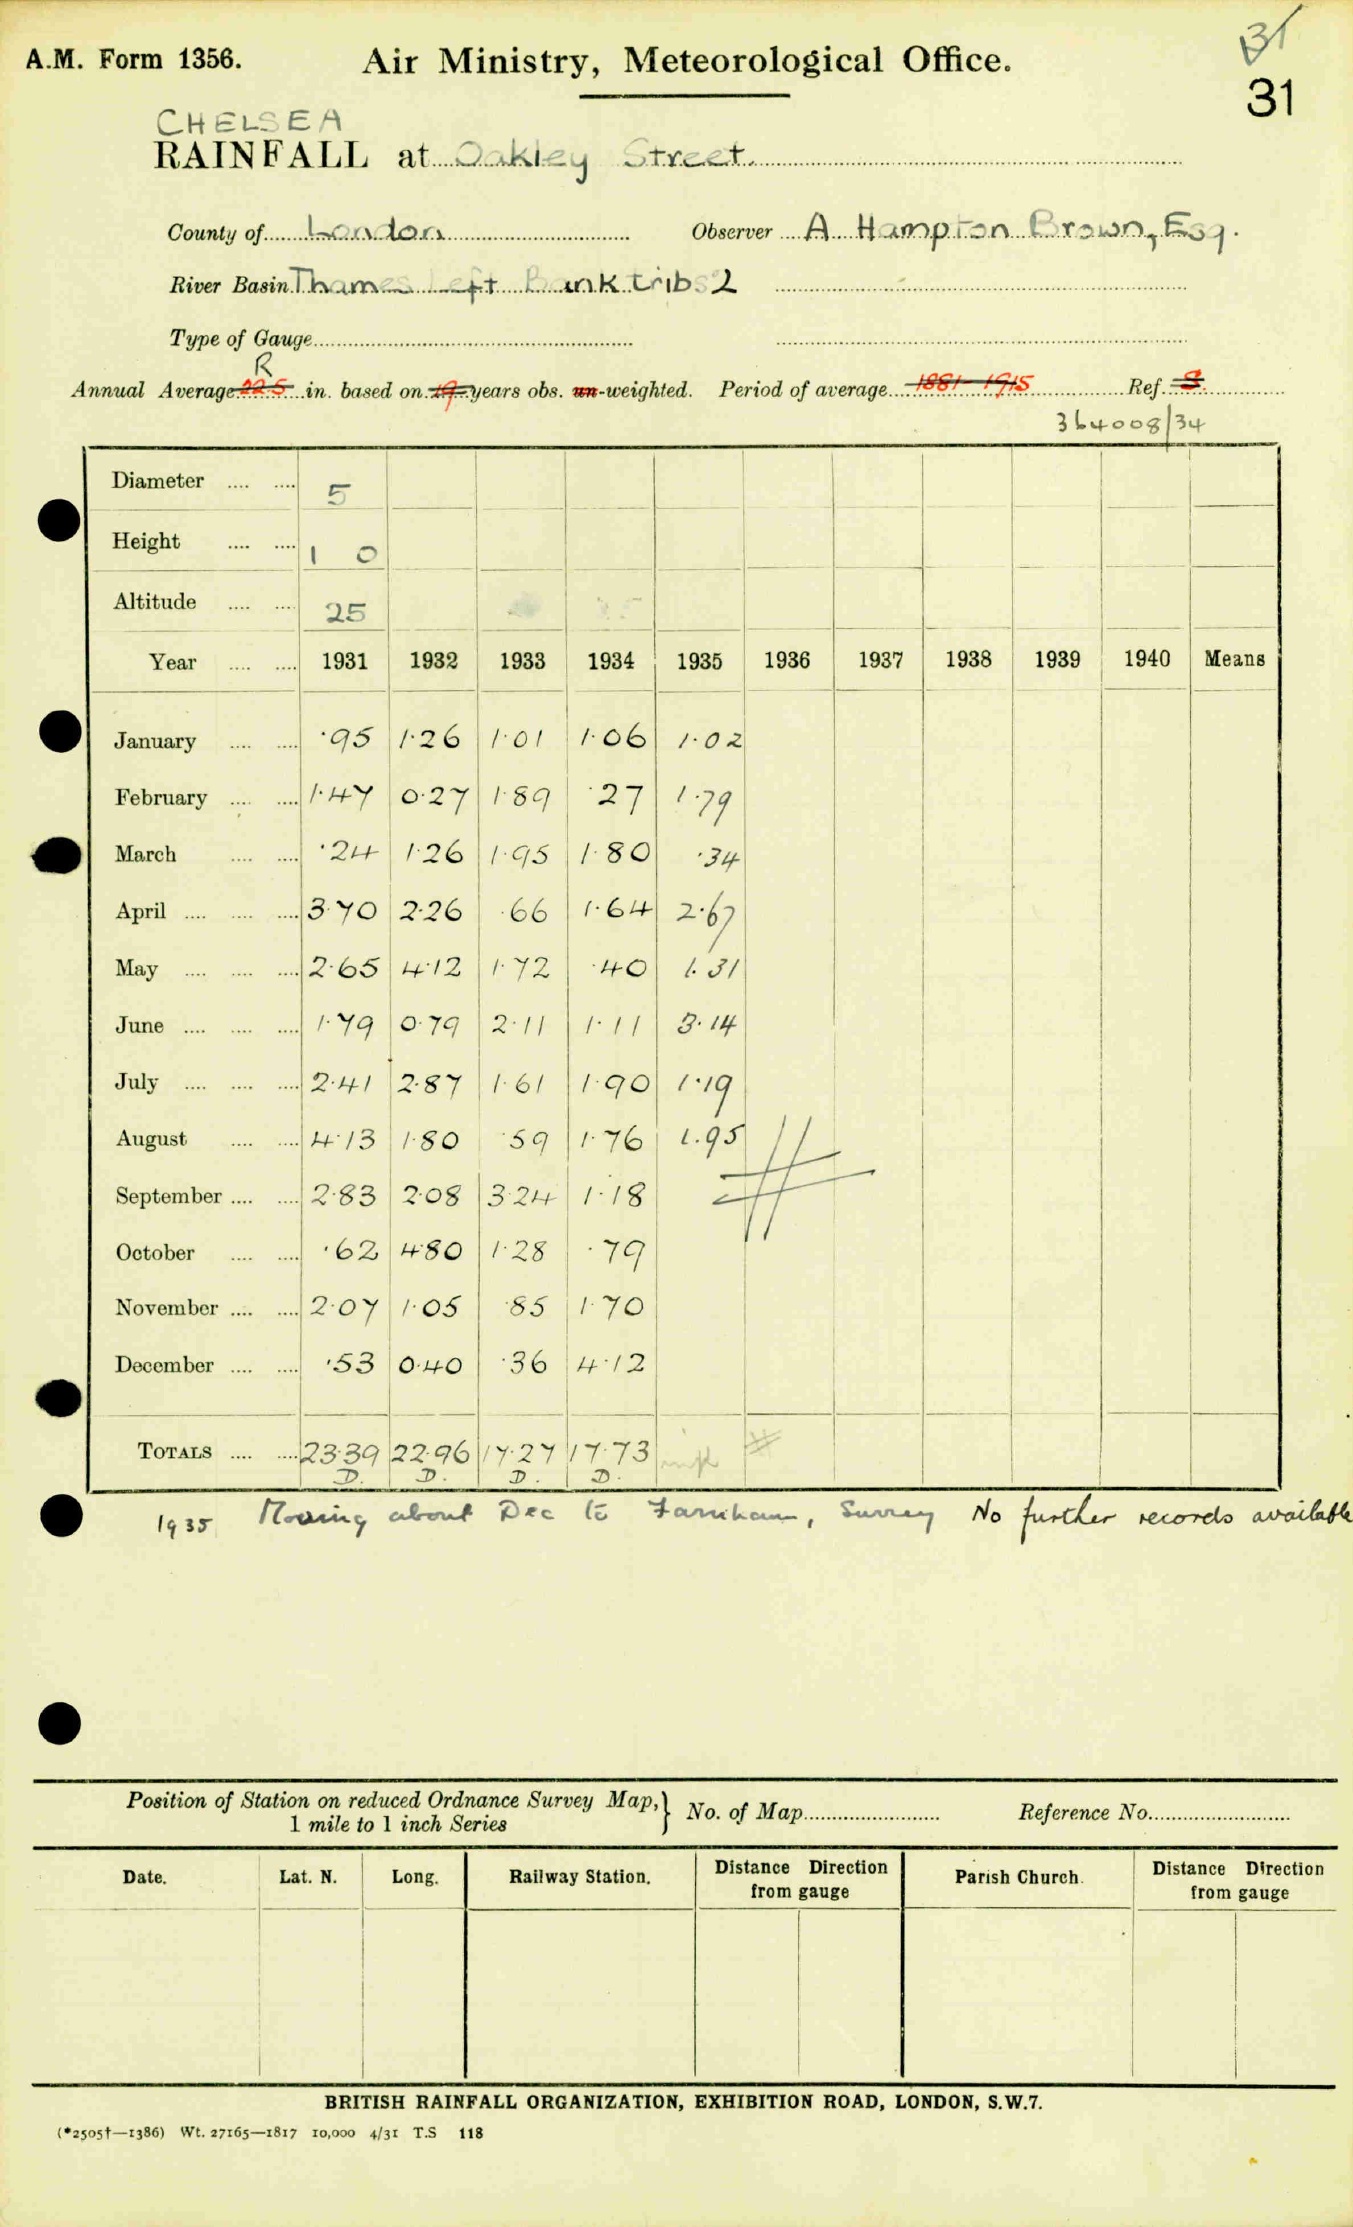 31
A.M. Form 1356. Air Ministry, Meteorological Office.
31
CHELSEA
RAINFALL at Oakley Street.
County of London Observer A Hampton Brown, Esq.
River Basin Thames Left Bank tribs 2
Type of Gauge
R
Annual Average 22.5 in. based on 19 years obs. un-weighted. Period of average 1881-1915 Ref. S.
364008/34
Diameter 5
Height 1 0
Altitude 25
Year 1931 1932 1933 1934 1935 1936 1937 1938 1939 1940 Means
January ·95 1·26 1·01 1·06 1·02
February 1·47 0·27 1·89 ·27 1·79
March ·24 1·26 1·95 1·80 ·34
April 3·70 2·26 ·66 1·64 2·67
May 2·65 4·12 1·72 ·40 1·31
June 1·79 0·79 2·11 1·11 3·14
July 2·41 2·87 1·61 1·90 1·19
August 4·13 1·80 ·59 1·76 1·95
September 2·83 2·08 3·24 1·18
October ·62 4·80 1·28 ·79
November 2·07 1·05 ·85 1·70
December ·53 0·40 ·36 4·12
TOTALS 23·39 22·96 17·27 17·73
D. D. D. D.
1935 Moving about Dec to Farnham, Surrey No further records available
Position of Station on reduced Ordnance Survey Map, } No. of Map Reference No.
1 mile to 1 inch Series
Date. Lat. N. Long. Railway Station. Distance Direction from gauge Parish Church. Distance Direction from gauge
BRITISH RAINFALL ORGANIZATION, EXHIBITION ROAD, LONDON, S.W.7.
(*2505†—1386) Wt. 27165—1817 10,000 4/31 T.S 118